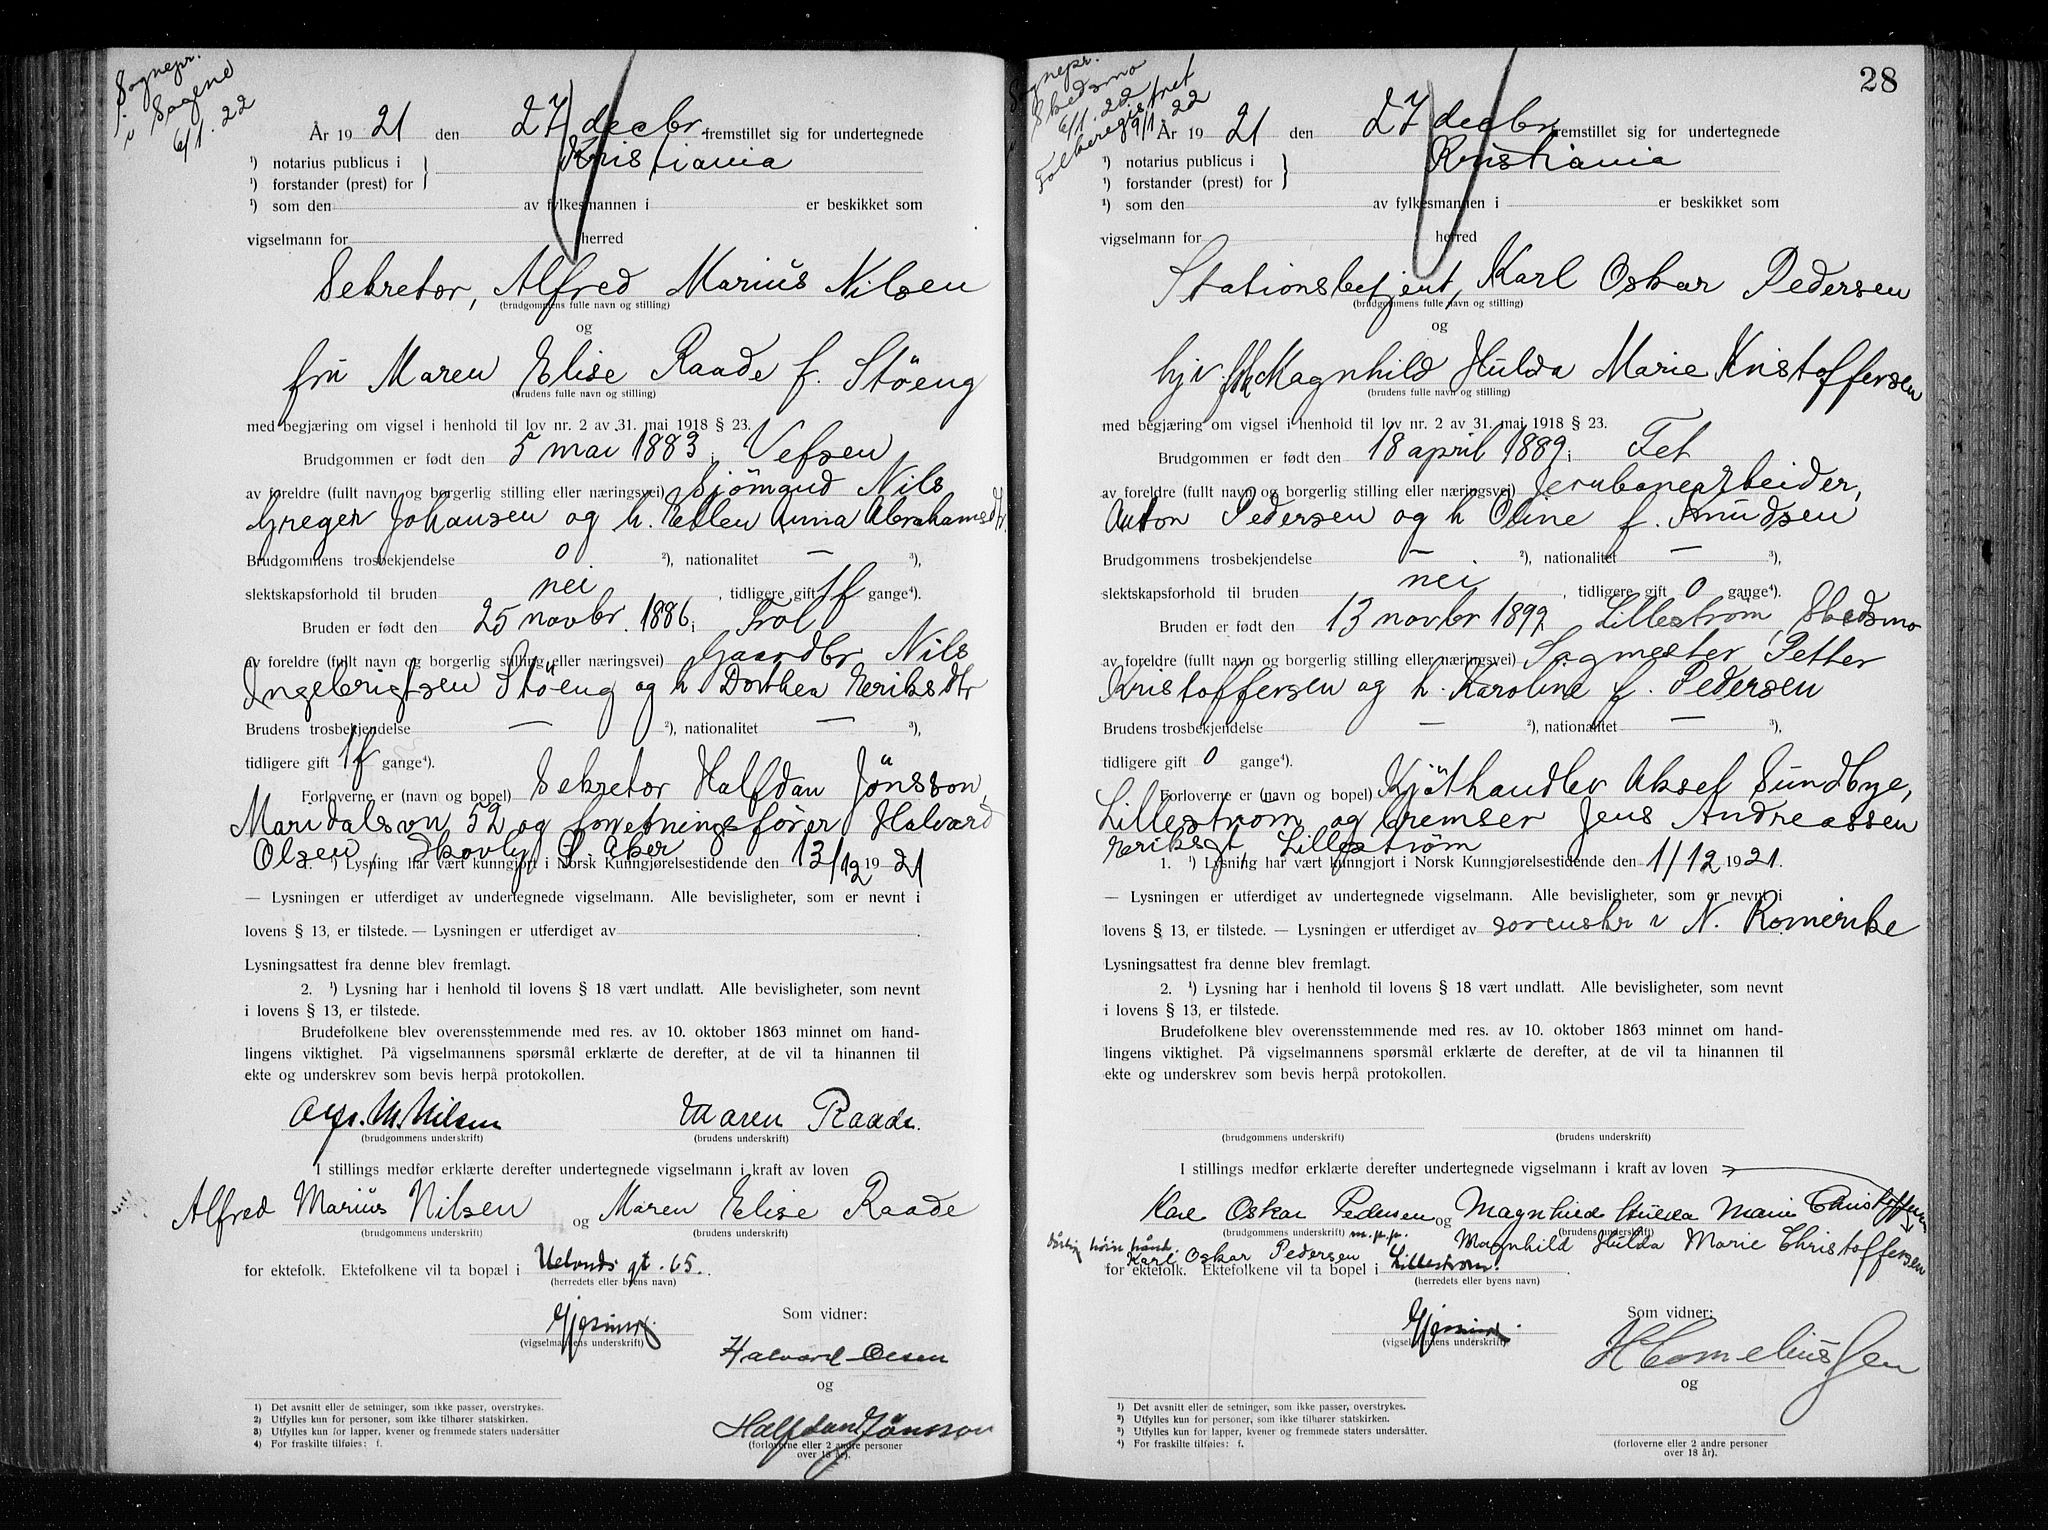 Sognepr.
i Sagene
6/1. 22
År 1921 den 27 decbr. fremstillet sig for undertegnede
¹) notarius publicus i } Kristiania
¹) forstander (prest) for
¹) som den av fylkesmannen i er beskikket som
vigselmann for herred
Sekretær, Alfred Marius Nilsen
(brudgommens fulle navn og stilling)
og
fru Maren Elise Raade f. Støeng
(brudens fulle navn og stilling)
med begjæring om vigsel i henhold til lov nr. 2 av 31. mai 1918 § 23.
Brudgommen er født den 5 mai 1883 i Vefsen
av foreldre (fullt navn og borgerlig stilling eller næringsvei) Sjömand Nils
Greger Johansen og h. Ellen Anna Abrahamsdtr.
Brudgommens trosbekjendelse 0 ²), nationalitet — ³),
slektskapsforhold til bruden nei, tidligere gift 1f gange⁴).
Bruden er født den 25 novbr. 1886 i Frol
av foreldre (fullt navn og borgerlig stilling eller næringsvei) Gaardbr Nils
Ingebrigtsen Støeng og h Dorthea Eeriksdtr
Brudens trosbekjendelse — ²), nationalitet — ³),
tidligere gift 1f gange⁴).
Forloverne er (navn og bopel) Sekretær Halfdan Jönsson,
Maridalsvn 52 og forretningsfører Halvard
Olsen, Skovly Ø. Aker
1. ¹) Lysning har vært kunngjort i Norsk Kunngjørelsestidende den 13/12 1921
— Lysningen er utferdiget av undertegnede vigselmann. Alle bevisligheter, som er nevnt i
lovens § 13, er tilstede. — Lysningen er utferdiget av .
Lysningsattest fra denne blev fremlagt.
2. ¹) Lysning har i henhold til lovens § 18 vært undlatt. Alle bevisligheter, som nevnt
i lovens § 13, er tilstede.
Brudefolkene blev overensstemmende med res. av 10. oktober 1863 minnet om hand-
lingens viktighet. På vigselmannens spørsmål erklærte de derefter, at de vil ta hinannen til
ekte og underskrev som bevis herpå protokollen.
Alfr. M. Nilsen Maren Raade.
(brudgommens underskrift) (brudens underskrift)
I stillings medfør erklærte derefter undertegnede vigselmann i kraft av loven
Alfred Marius Nilsen og Maren Elise Raade
(brudgommens underskrift) (brudens underskrift)
for ektefolk. Ektefolkene vil ta bopæl i Uelands gt. 65.
(herredets eller byens navn)
Som vidner:
(vigselmannens underskrift)
Halvard Olsen
og
Halfdan Jönsson
(forloverne eller 2 andre personer
over 18 år).
1) Det avsnitt eller de setninger, som ikke passer, overstrykes.
2) Utfylles kun for personer, som ikke tilhører statskirken.
3) Utfylles kun for lapper, kvener og fremmede staters undersåtter
4) For fraskilte tilføies: f.
28
Sognepr.
i Skedsmo
6/1. 22
Folkeregistret
9/1. 22
År 1921 den 27 decbr fremstillet sig for undertegnede
¹) notarius publicus i } Kristiania
¹) forstander (prest) for
¹) som den av fylkesmannen i er beskikket som
vigselmann for herred
Stationsbetjent, Karl Oskar Pedersen
(brudgommens fulle navn og stilling)
og
Magnhild Hulda Marie Kristoffersen
(brudens fulle navn og stilling)
med begjæring om vigsel i henhold til lov nr. 2 av 31. mai 1918 § 23.
Brudgommen er født den 18 april 1889 i Fet
av foreldre (fullt navn og borgerlig stilling eller næringsvei) Jernbanearbeider,
Anton Pedersen og h Oline f. Knudsen
Brudgommens trosbekjendelse — ²), nationalitet — ³),
slektskapsforhold til bruden nei, tidligere gift 0 gange⁴).
Bruden er født den 13 novbr 1892 i Lilleström, Skedsmo
av foreldre (fullt navn og borgerlig stilling eller næringsvei) Sagmester Petter
Kristoffersen og h. Karoline f. Pedersen
Brudens trosbekjendelse — ²), nationalitet — ³),
tidligere gift 0 gange⁴).
Forloverne er (navn og bopel) Kjöthandler Aksel Sundbye,
Lilleström og bremser Jens Andreassen
Eeriksgt, Lilleström
1. ¹) Lysning har vært kunngjort i Norsk Kunngjørelsestidende den 1/12 1921.
— Lysningen er utferdiget av undertegnede vigselmann. Alle bevisligheter, som er nevnt i
lovens § 13, er tilstede. — Lysningen er utferdiget av sorenskr i N. Romerike
Lysningsattest fra denne blev fremlagt.
2. ¹) Lysning har i henhold til lovens § 18 vært undlatt. Alle bevisligheter, som nevnt
i lovens § 13, er tilstede.
Brudefolkene blev overensstemmende med res. av 10. oktober 1863 minnet om hand-
lingens viktighet. På vigselmannens spørsmål erklærte de derefter, at de vil ta hinannen til
ekte og underskrev som bevis herpå protokollen.
(brudgommens underskrift) (brudens underskrift)
I stillings medfør erklærte derefter undertegnede vigselmann i kraft av loven
Karl Oskar Pedersen og Magnhild Hulda Marie Christoffersen
(brudgommens underskrift) m. p. p. (brudens underskrift)
Karl Oskar Pedersen Magnhild Hulda Marie Christoffersen
for ektefolk. Ektefolkene vil ta bopel i Lilleström.
(herredets eller byens navn)
Som vidner:
(vigselmannens underskrift)
H Corneliussen
og
¹) Det avsnitt eller de setninger, som ikke passer, overstrykes.
²) Utfylles kun for personer, som ikke tilhører statskirken.
³) Utfylles kun for lapper, kvener og fremmede staters undersåtter.
⁴) For fraskilte tilføies: f.
(forloverne eller 2 andre personer
over 18 år).